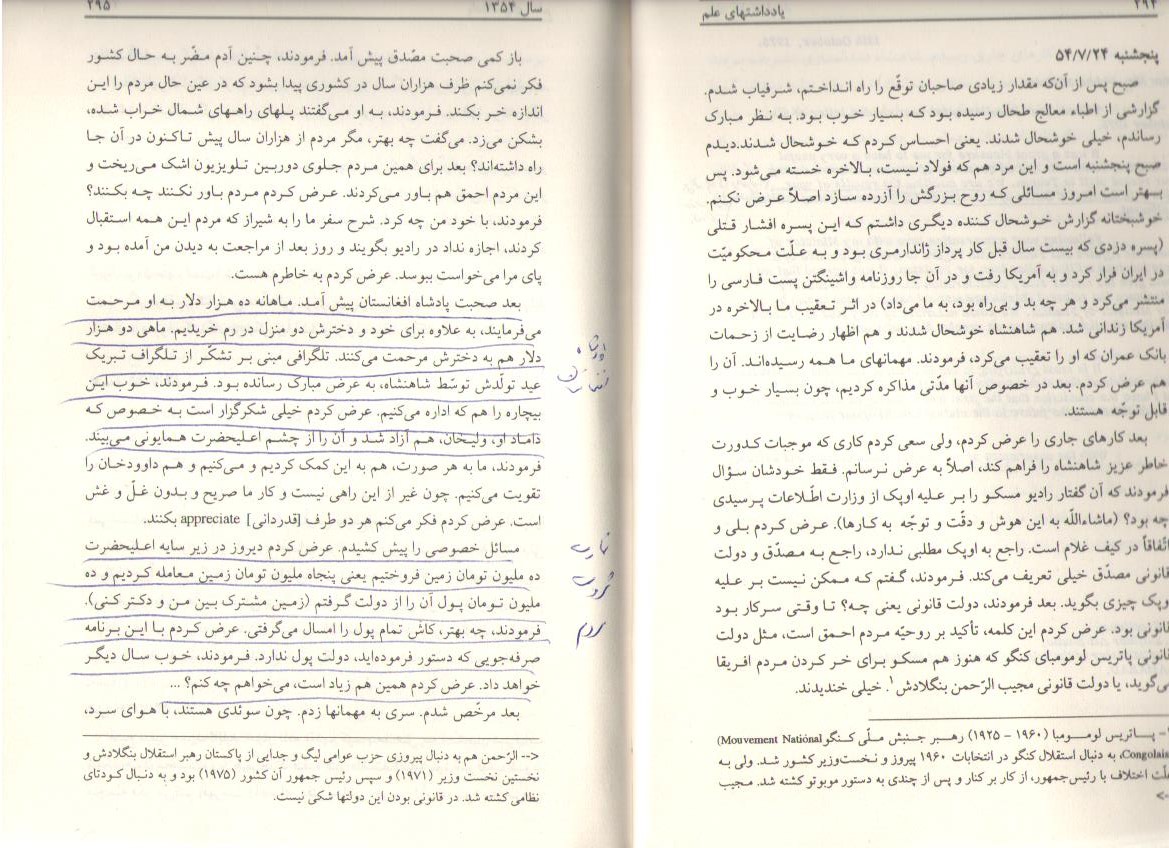 ۲۹۴
یادداشتهای علم
پنجشنبه ۵۴/۷/۲۴
صبح پس از آن‌که مقدار زیادی صاحبان توقّع را راه انداختم، شرفیاب شدم.
گزارشی از اطباء معالج طحال رسیده بود که بسیار خوب بود. به نظر مبارک
رساندم، خیلی خوشحال شدند. یعنی احساس کردم که خوشحال شدند. دیدم
صبح پنجشنبه است و این مرد هم که فولاد نیست، بالاخره خسته می‌شود. پس
بهتر است امروز مسائلی که روح بزرگش را آزرده سازد اصلاً عرض نکنم.
خوشبختانه گزارش خوشحال کننده دیگری داشتم که این پسره افشار قتلی
(پسره دزدی که بیست سال قبل کار پرداز ژاندارمری بود و به علّت محکومیّت
در ایران فرار کرد و به آمریکا رفت و در آن جا روزنامه واشینگتن پست فارسی را
منتشر می‌کرد و هر چه بد و بی‌راه بود، به ما می‌داد) در اثر تعقیب ما بالاخره در
آمریکا زندانی شد. هم شاهنشاه خوشحال شدند و هم اظهار رضایت از زحمات
بانک عمران که او را تعقیب می‌کرد، فرمودند. مهمانهای ما همه رسیده‌اند. آن را
هم عرض کردم. بعد در خصوص آنها مدّتی مذاکره کردیم، چون بسیار خوب و
قابل توجّه هستند.
بعد کارهای جاری را عرض کردم، ولی سعی کردم کاری که موجبات کدورت
خاطر عزیز شاهنشاه را فراهم کند، اصلاً به عرض نرسانم. فقط خودشان سؤال
فرمودند که آن گفتار رادیو مسکو را بر علیه اوپک از وزارت اطّلاعات پرسیدی
چه بود؟ (ماشاءاللّه به این هوش و دقّت و توجّه به کارها). عرض کردم بلی و
اتّفاقاً در کیف غلام است. راجع به اوپک مطلبی ندارد، راجع به مصدّق و دولت
قانونی مصدّق خیلی تعریف می‌کند. فرمودند، گفتم که ممکن نیست بر علیه
اوپک چیزی بگوید. بعد فرمودند، دولت قانونی یعنی چه؟ تا وقتی سرکار بود
قانونی بود. عرض کردم این کلمه، تأکید بر روحیّه مردم احمق است، مثل دولت
قانونی پاتریس لومومبای کنگو که هنوز هم مسکو برای خر کردن مردم افریقا
می‌گوید، یا دولت قانونی مجیب الرّحمن بنگلادش۱. خیلی خندیدند.
۱- پاتریس لومومبا (۱۹۶۰ - ۱۹۲۵) رهبر جنبش ملّی کنگو Mouvement National)
Congolais)، به دنبال استقلال کنگو در انتخابات ۱۹۶۰ پیروز و نخست‌وزیر کشور شد. ولی به
علّت اختلاف با رئیس‌جمهور، از کار بر کنار و پس از چندی به دستور موبوتو کشته شد. مجیب
<-
سال ۱۳۵۴
۲۹۵
باز کمی صحبت مصدّق پیش آمد. فرمودند، چنین آدم مضّر به حال کشور
فکر نمی‌کنم ظرف هزاران سال در کشوری پیدا بشود که در عین حال مردم را این
اندازه خر بکند. فرمودند، به او می‌گفتند پلهای راههای شمال خراب شده،
بشکن می‌زد. می‌گفت چه بهتر، مگر مردم از هزاران سال پیش تاکنون در آن جا
راه داشته‌اند؟ بعد برای همین مردم جلوی دوربین تلویزیون اشک می‌ریخت و
این مردم احمق هم باور می‌کردند. عرض کردم مردم باور نکنند چه بکنند؟
فرمودند، با خود من چه کرد. شرح سفر ما را به شیراز که مردم این همه استقبال
کردند، اجازه نداد در رادیو بگویند و روز بعد از مراجعت به دیدن من آمده بود و
پای مرا می‌خواست ببوسد. عرض کردم به خاطرم هست.
بعد صحبت پادشاه افغانستان پیش آمد. ماهانه ده هزار دلار به او مرحمت
می‌فرمایند، به علاوه برای خود و دخترش دو منزل در رم خریدیم. ماهی دو هزار
دلار هم به دخترش مرحمت می‌کنند. تلگرافی مبنی بر تشکّر از تلگراف تبریک
عید تولّدش توسّط شاهنشاه، به عرض مبارک رسانده بود. فرمودند، خوب این
بیچاره را هم که اداره می‌کنیم. عرض کردم خیلی شکرگزار است به خصوص که
داماد او، ولیخان، هم آزاد شد و آن را از چشم اعلیحضرت همایونی می‌بیند.
فرمودند، ما به هر صورت، هم به این کمک کردیم و می‌کنیم و هم داوودخان را
تقویت می‌کنیم. چون غیر از این راهی نیست و کار ما صریح و بدون غلّ و غش
است. عرض کردم فکر می‌کنم هر دو طرف [قدردانی] appreciate بکنند.
مسائل خصوصی را پیش کشیدم. عرض کردم دیروز در زیر سایه اعلیحضرت
ده ملیون تومان زمین فروختیم یعنی پنجاه ملیون تومان زمین معامله کردیم و ده
ملیون تومان پول آن را از دولت گرفتم (زمین مشترک بین من و دکتر کنی).
فرمودند، چه بهتر، کاش تمام پول را امسال می‌گرفتی. عرض کردم با این برنامه
صرفه‌جویی که دستور فرموده‌اید، دولت پول ندارد. فرمودند، خوب سال دیگر
خواهد داد. عرض کردم همین هم زیاد است، می‌خواهم چه کنم؟ ...
بعد مرخّص شدم. سری به مهمانها زدم. چون سوئدی هستند، با هوای سرد،
<-- الرّحمن هم به دنبال پیروزی حزب عوامی لیگ و جدایی از پاکستان رهبر استقلال بنگلادش و
نخستین نخست وزیر (۱۹۷۱) و سپس رئیس جمهور آن کشور (۱۹۷۵) بود و به دنبال کودتای
نظامی کشته شد. در قانونی بودن این دولتها شکی نیست.
مردم